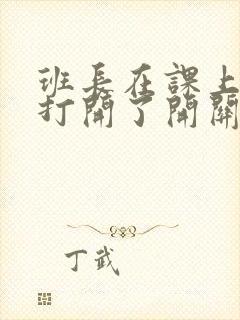 班長在課上
打開了開關
丁武